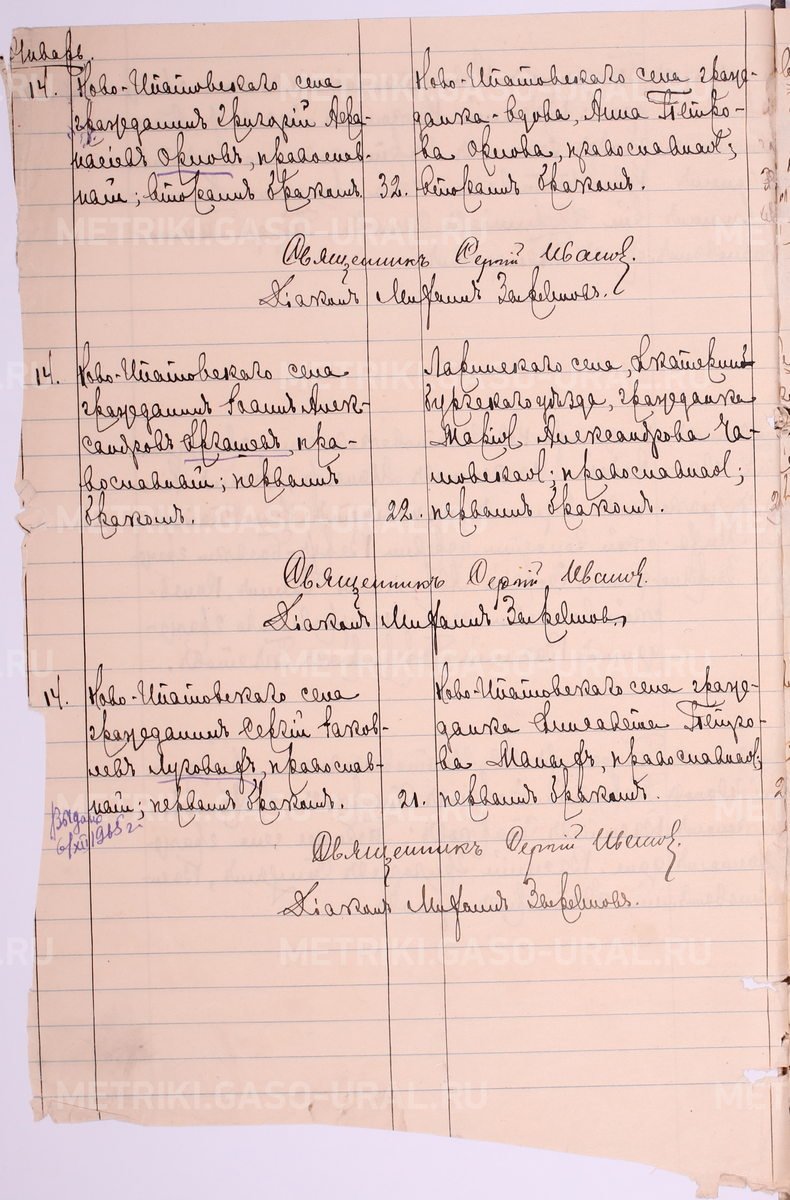 Январь.
14. Ново-Ипатовскаго села
гражданинъ Григорій Афа-
насіевъ Орловъ, православ-
ный; вторымъ бракомъ.
Ново-Ипатовскаго села граж-
данка-вдова, Анна Петро-
ва Орлова, православная;
32. вторымъ бракомъ.
Священникъ Сергій Ивановъ.
Діаконъ Михаилъ
14. Ново-Ипатовскаго села
гражданинъ Іоаннъ Алек-
сандровъ пра-
вославный; первымъ
бракомъ.
Ларинскаго села, Екатерин-
бургскаго уѣзда, гражданка
Марія Александрова
православная;
22. первымъ бракомъ.
Священникъ Сергій Ивановъ.
Діаконъ Михаилъ
14. Ново-Ипатовскаго села
гражданинъ Сергій Іаков-
левъ православ-
ный; первымъ бракомъ.
Ново-Ипатовскаго села граж-
данка Елисавета Петро-
ва православная;
21. первымъ бракомъ.
Выдано
6/XII 1945 г.
Священникъ Сергій Ивановъ.
Діаконъ Михаилъ
METRIKI.GASO-URAL.RU